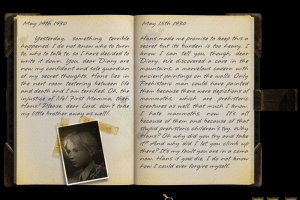 May 14th, 1930
Yesterday, something terrible
happened. I do not know who to turn
to, who to talk to so I have decided
to write it down. You, dear Diary are
now my confidant and sole guardian
of my secret thoughts. Hans lies in
the next room teetering between life
and death and I am terrified. Oh, the
injustice of life! First Momma, then
Hans? Please, dear Lord, don't take
my little brother away as well!
May 15th, 1930
Hans made me promise to keep this a
secret but its burden is too heavy. I
know I can tell you though, dear
Diary. We discovered a cave in the
mountains, a marvelous cavern with
ancient paintings on the walls. Only
Prehistoric man could have painted
them because there were depictions of
mammoths, which are prehistoric
creatures as well, that much I know.
I hate mammoths now. It's all
because of them and because of that
stupid prehistoric children's toy. Why
Hans? Oh why did you try and take
it? And why did I let you climb up
there? It's my fault you are in a coma
now. Hans if you die, I do not know
how I could ever forgive myself.